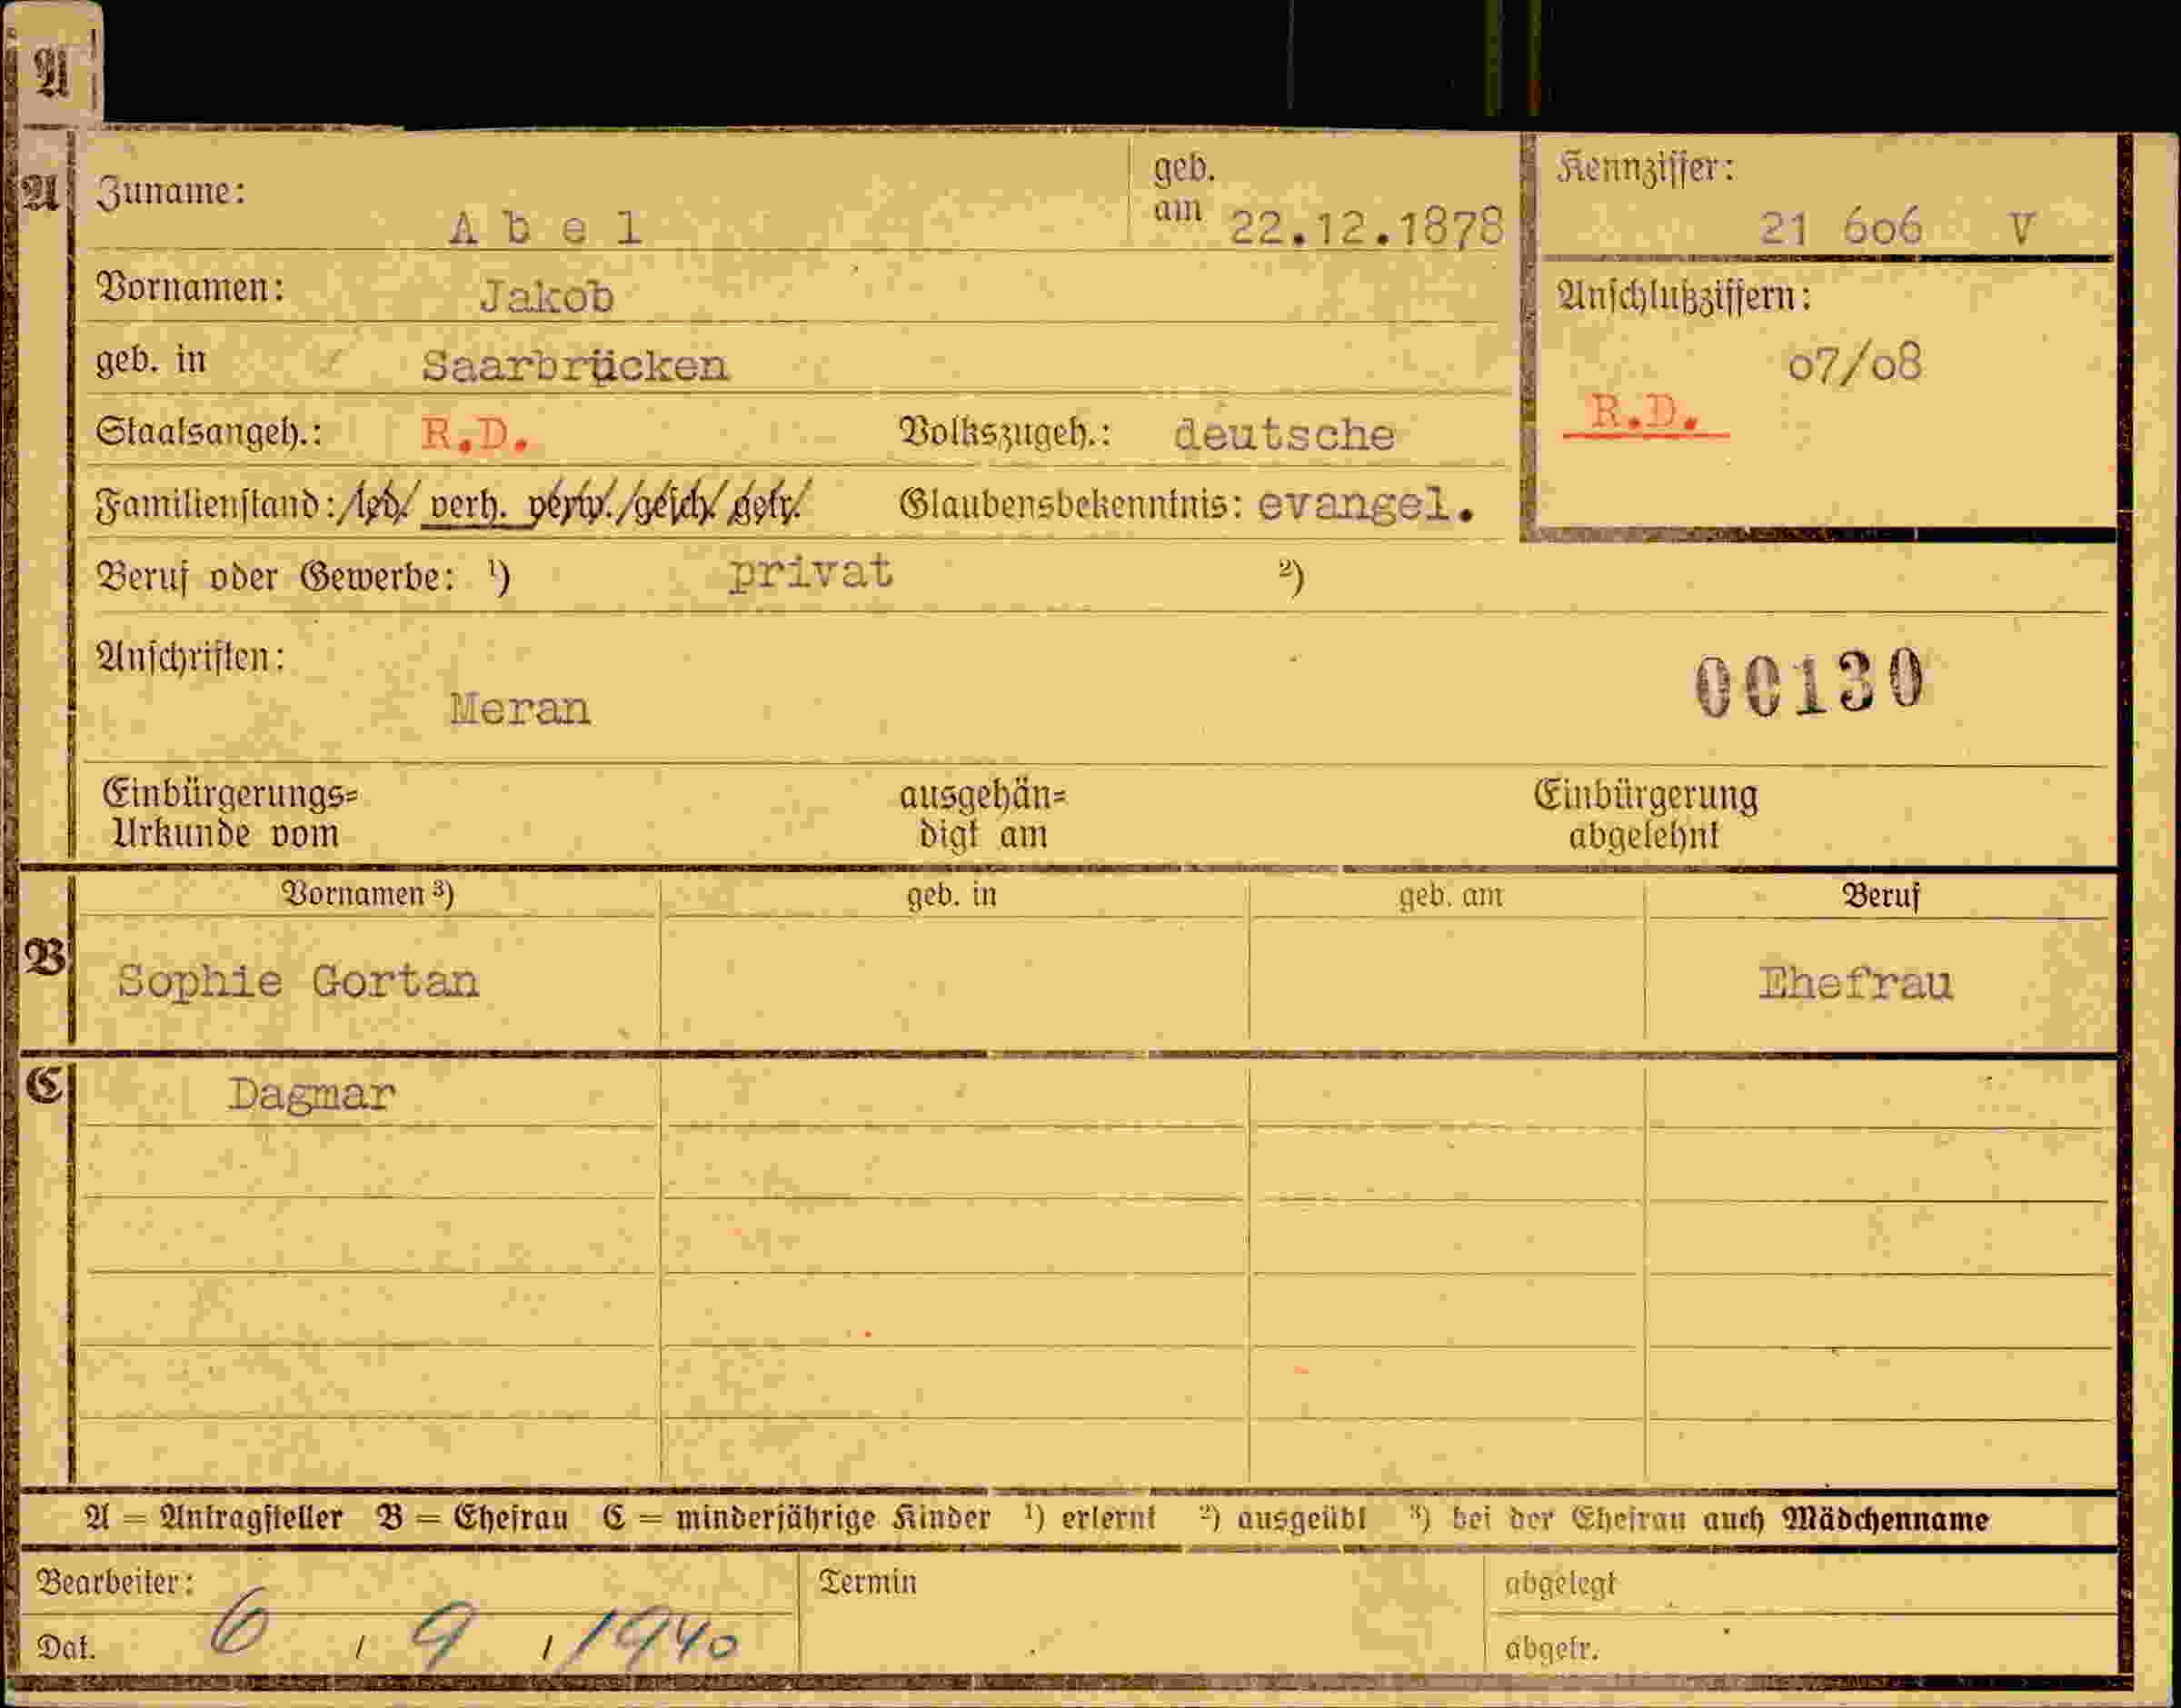 A
A Zuname: Abel geb. am 22.12.1878 Kennziffer: 21 606 V
Vornamen: Jakob Anschlußziffern:
geb. in Saarbrücken 07/08
Staatsangeh.: R.D. Volkszugeh.: deutsche R.D.
Familienstand: led. verh. verw. gesch. getr. Glaubensbekenntnis: evangel.
Beruf oder Gewerbe: ¹) privat ²)
Anschriften: 00130
Meran
Einbürgerungs= ausgehän= Einbürgerung
Urkunde vom digt am abgelehnt
Vornamen ³) geb. in geb. am Beruf
B Sophie Gortan Ehefrau
C Dagmar
A = Antragsteller B = Ehefrau C = minderjährige Kinder ¹) erlernt ²) ausgeübt ³) bei der Ehefrau auch Mädchenname
Bearbeiter: Termin abgelegt
Dat. 6 / 9 / 1940 abgetr.